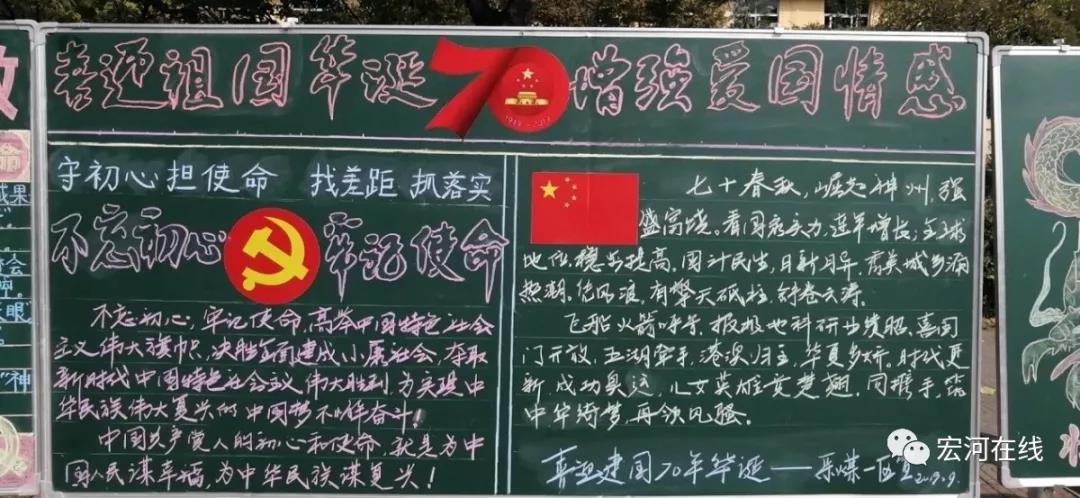 喜迎祖国华诞70增强爱国情感
1949-2019
守初心担使命 找差距 抓落实
不忘初心 牢记使命
不忘初心,牢记使命,高举中国特色社会
主义伟大旗帜,决胜全面建成小康社会,夺取
新时代中国特色社会主义伟大胜利,为实现中
华民族伟大复兴的中国梦不懈奋斗!
中国共产党人的初心和使命,就是为中
国人民谋幸福,为中华民族谋复兴!
七十春秋,崛起神州,强
盛富饶。看国家实力,连年增长;全球
地位,稳步提高,国计民生,日新月异,
热潮。
飞船火箭呼号,报捷地科研出绩昭。喜国
门开放,五湖牵手,港澳归主,华夏多娇。时代更
新,成功奥运,儿女英雄
中华绮梦,再领风骚。
喜迎建国70年华诞——乐煤一区 2019.9.
成果
会
眼
神
宏河在线